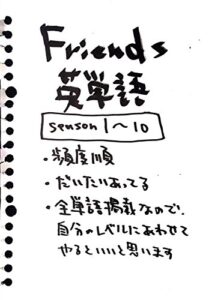 Friends
英単語
season 1〜10
・頻度順
・だいたいあってる
・全単語掲載なので、
自分のレベルにあわせて
やるといいと思います